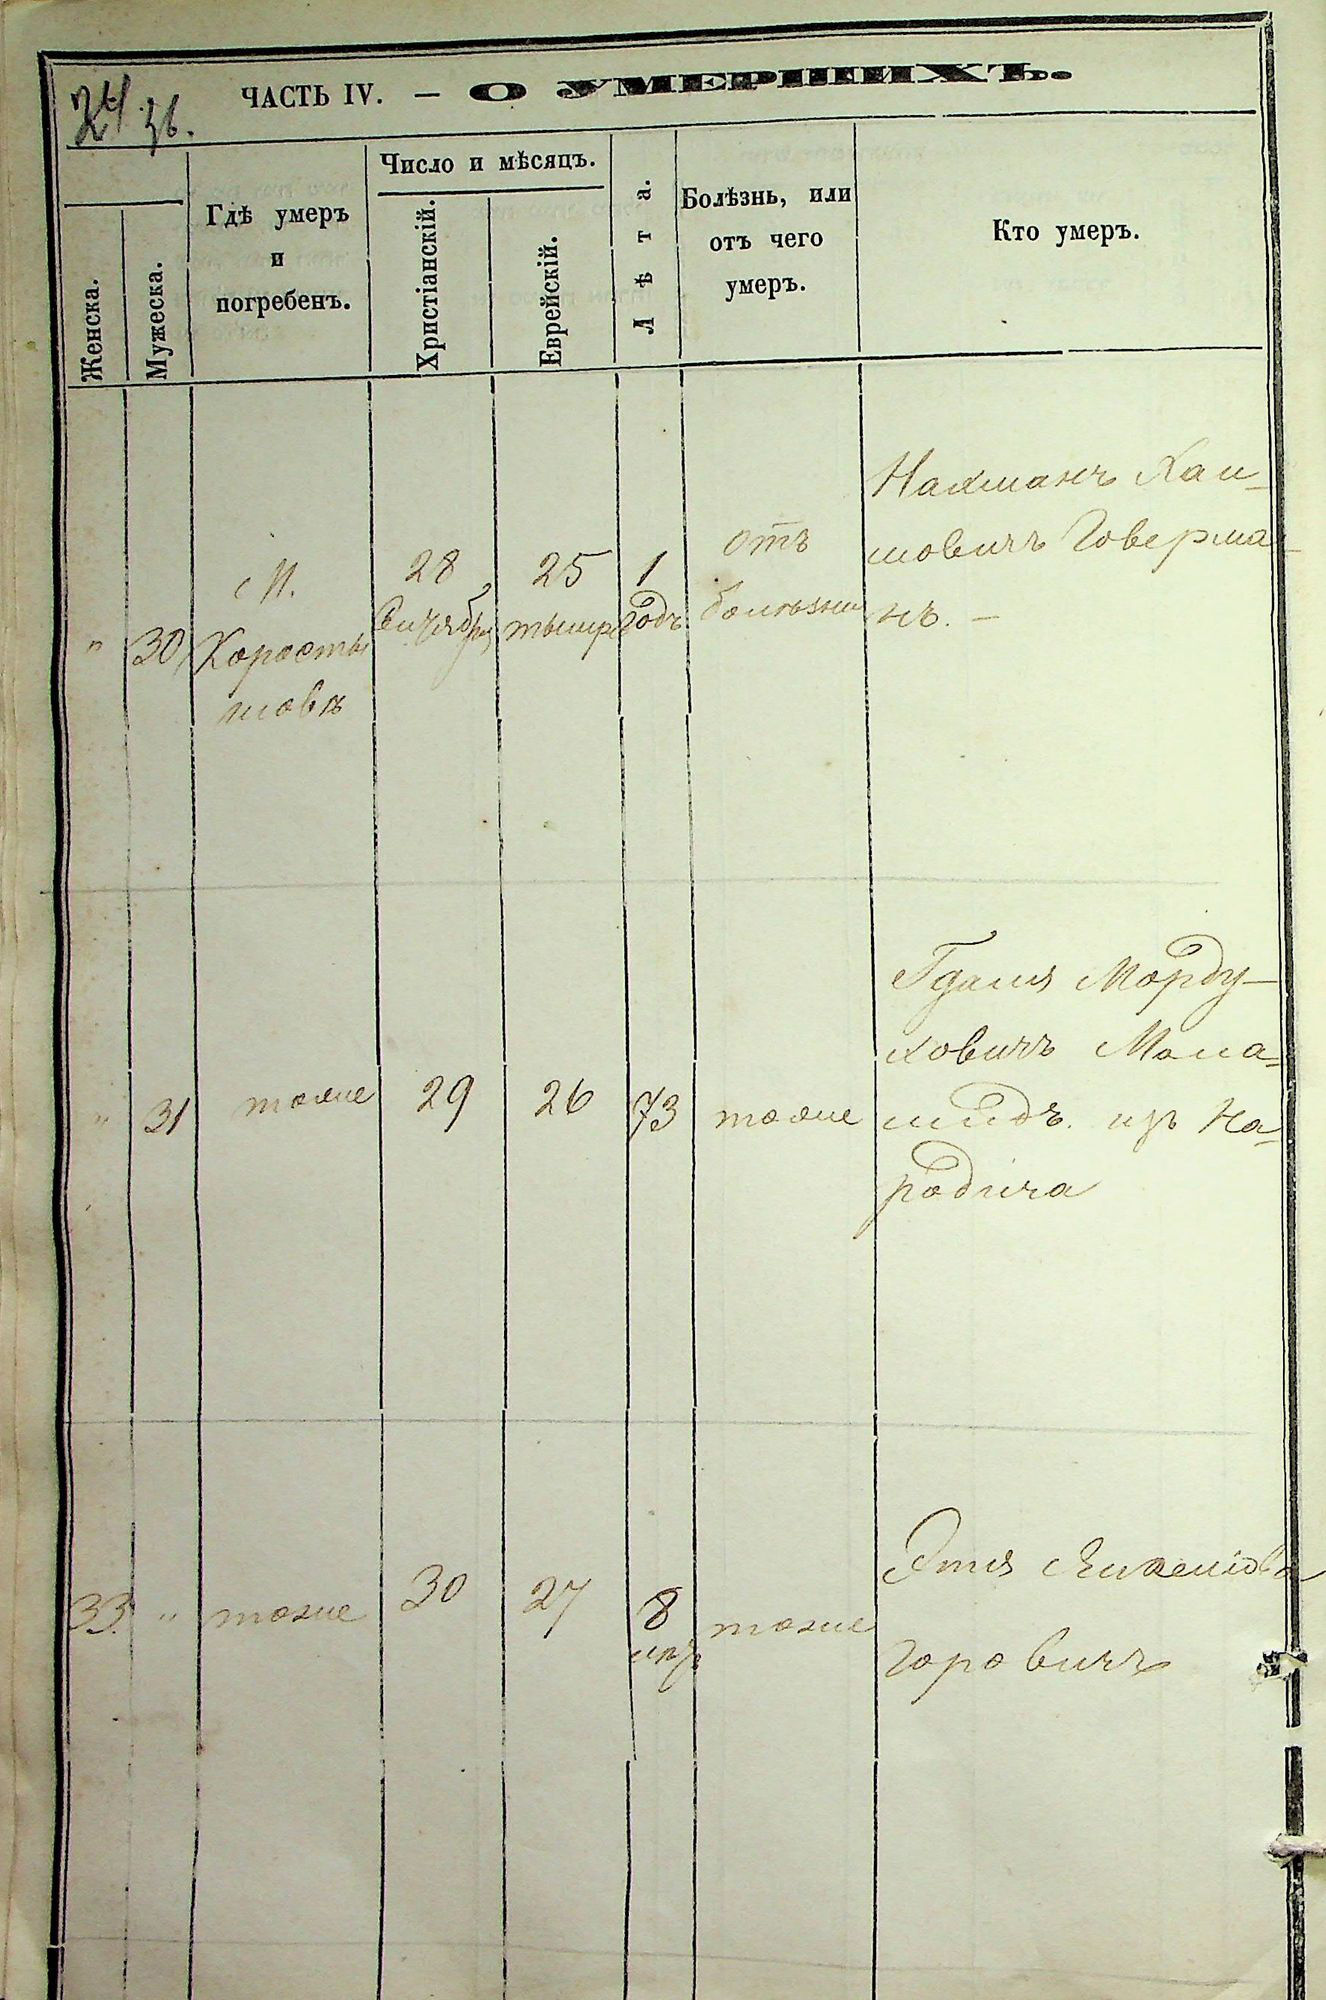 24. 36.
ЧАСТЬ IV. — О УМЕРШИХЪ.
Женска.
Мужеска.
Гдѣ умеръ
и
погребенъ.
Число и мѣсяцъ.
Христіанскій.
Еврейскій.
Лѣта.
Болѣзнь, или
отъ чего
умеръ.
Кто умеръ.
"
30
М.
Коросты
шовъ
28
Сентября
25
тышре
1
годъ
отъ
болѣзни
Нахманъ Хаи-
мовичъ Говерма-
нъ. —
"
31
тоже
29
26
73
тоже
Гдаля Морду-
ховичъ Мела-
медъ. изъ На-
родича
33
"
тоже
30
27
8
мѣ
тоже
Этля Янкелiова
Горовичъ